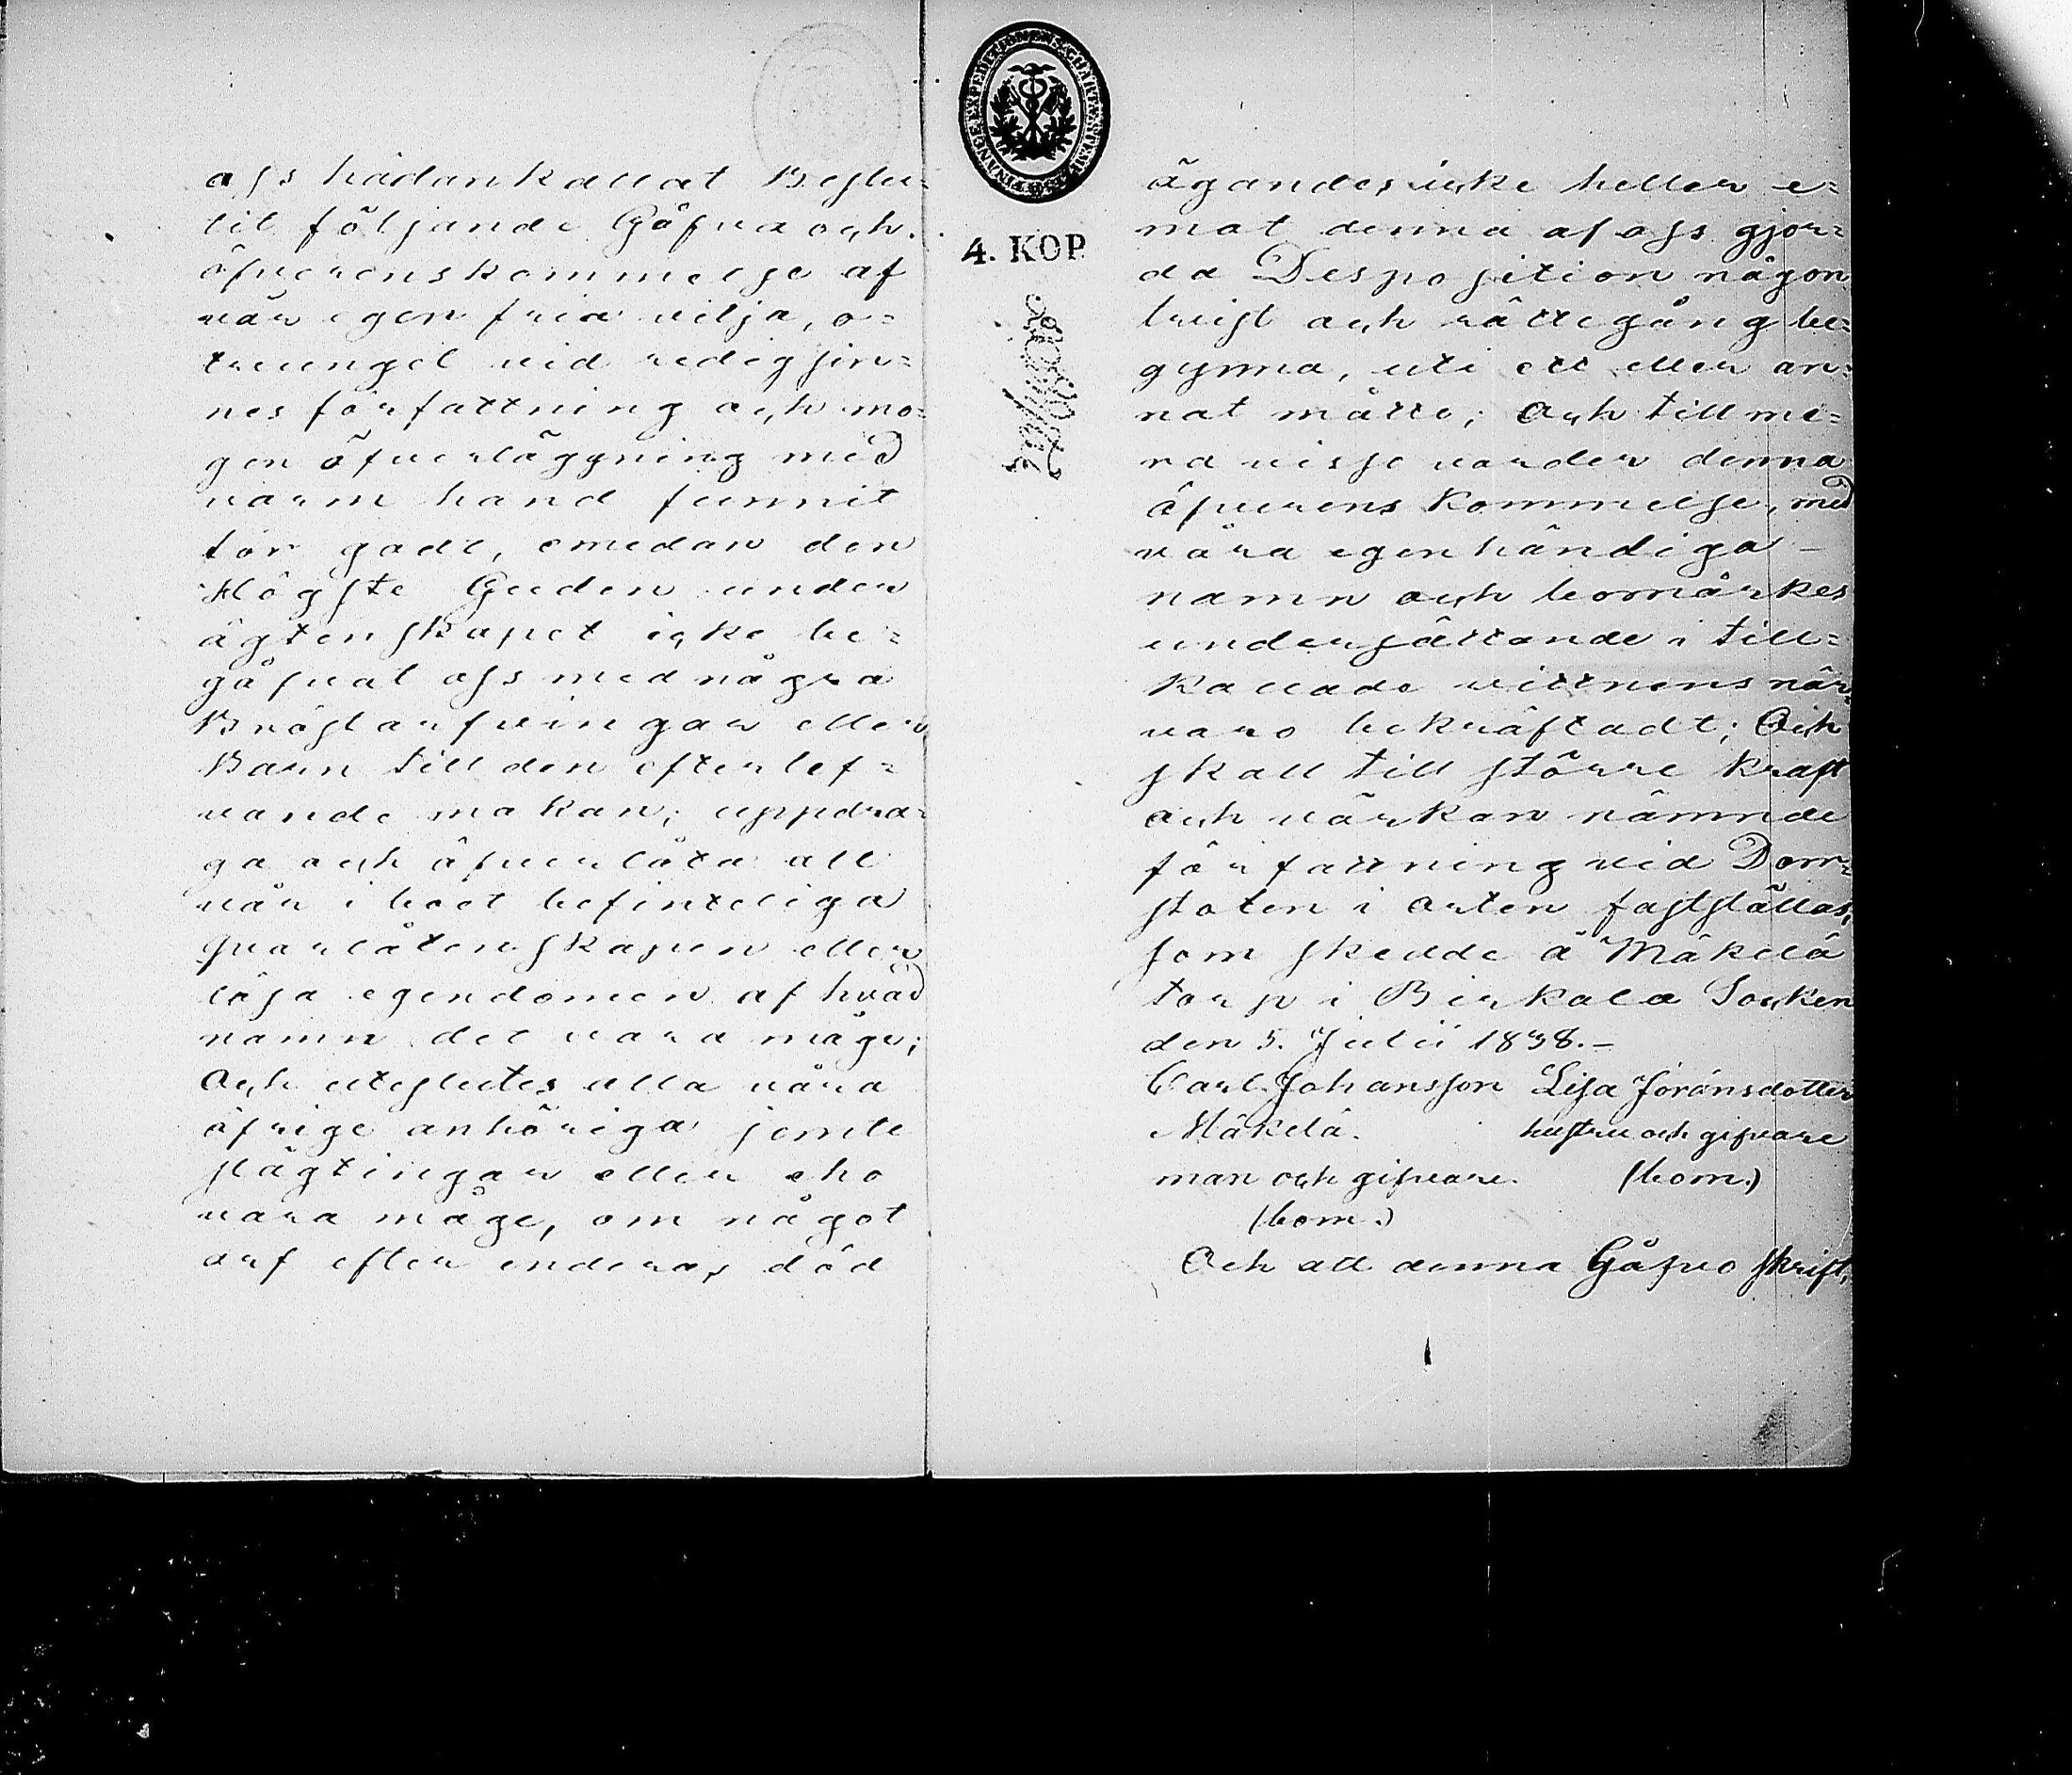 oss hädankallat Beslu-
tit följande Gåfva och
öfverenskommelse af
vår egen fria vilja, o=
tvungit vid redig sin=
nes författning och mo=
gen öfverläggning med
varm hand funnit
för godt, emedan den
Högste Guden under
ägtenskapet icke be=
gåfvat oss med några
Bröstarfvingar eller
Barn till den efterlef=
vande makan; uppdra=
ga och öfverlåta all
vår i boet befinteliga
qvarlåtenskapen eller
lösa egendomen af hvad
namn det vara måge;
Och uteslutes alla våra
öfrige anhöriga jemte
slägtingar eller eho
vara måge, om något
arf efter enderas död
FINANCE EXPEDITIONENS CHARTÆ SIGILLATÆ
4. KOP.
ägandes icke heller e=
mot denna af oss gjor=
da Desposition någon
tvist och rättegång be=
gynna, uti ett eller an=
nat måtto; Och till me=
ra visso varder denna
öfverens kommelse, med
våra egenhändiga –
namn och bomärkes
undersättande i till=
kallade vittnens när=
varo bekräftadt; Och
skall till större kraft
och värkan nämnde
författning vid Dom=
stolen i orten fastställas,
som skedde å Mäkelä
torp i Birkala Socken
den 5. Julii 1838. –
Carl Johansson Lisa Jöransdotter
Mäkelä. hustru och gifvare
man och gifvare. (bom.)
(bom.)
Och att denna Gåfvo skrift,